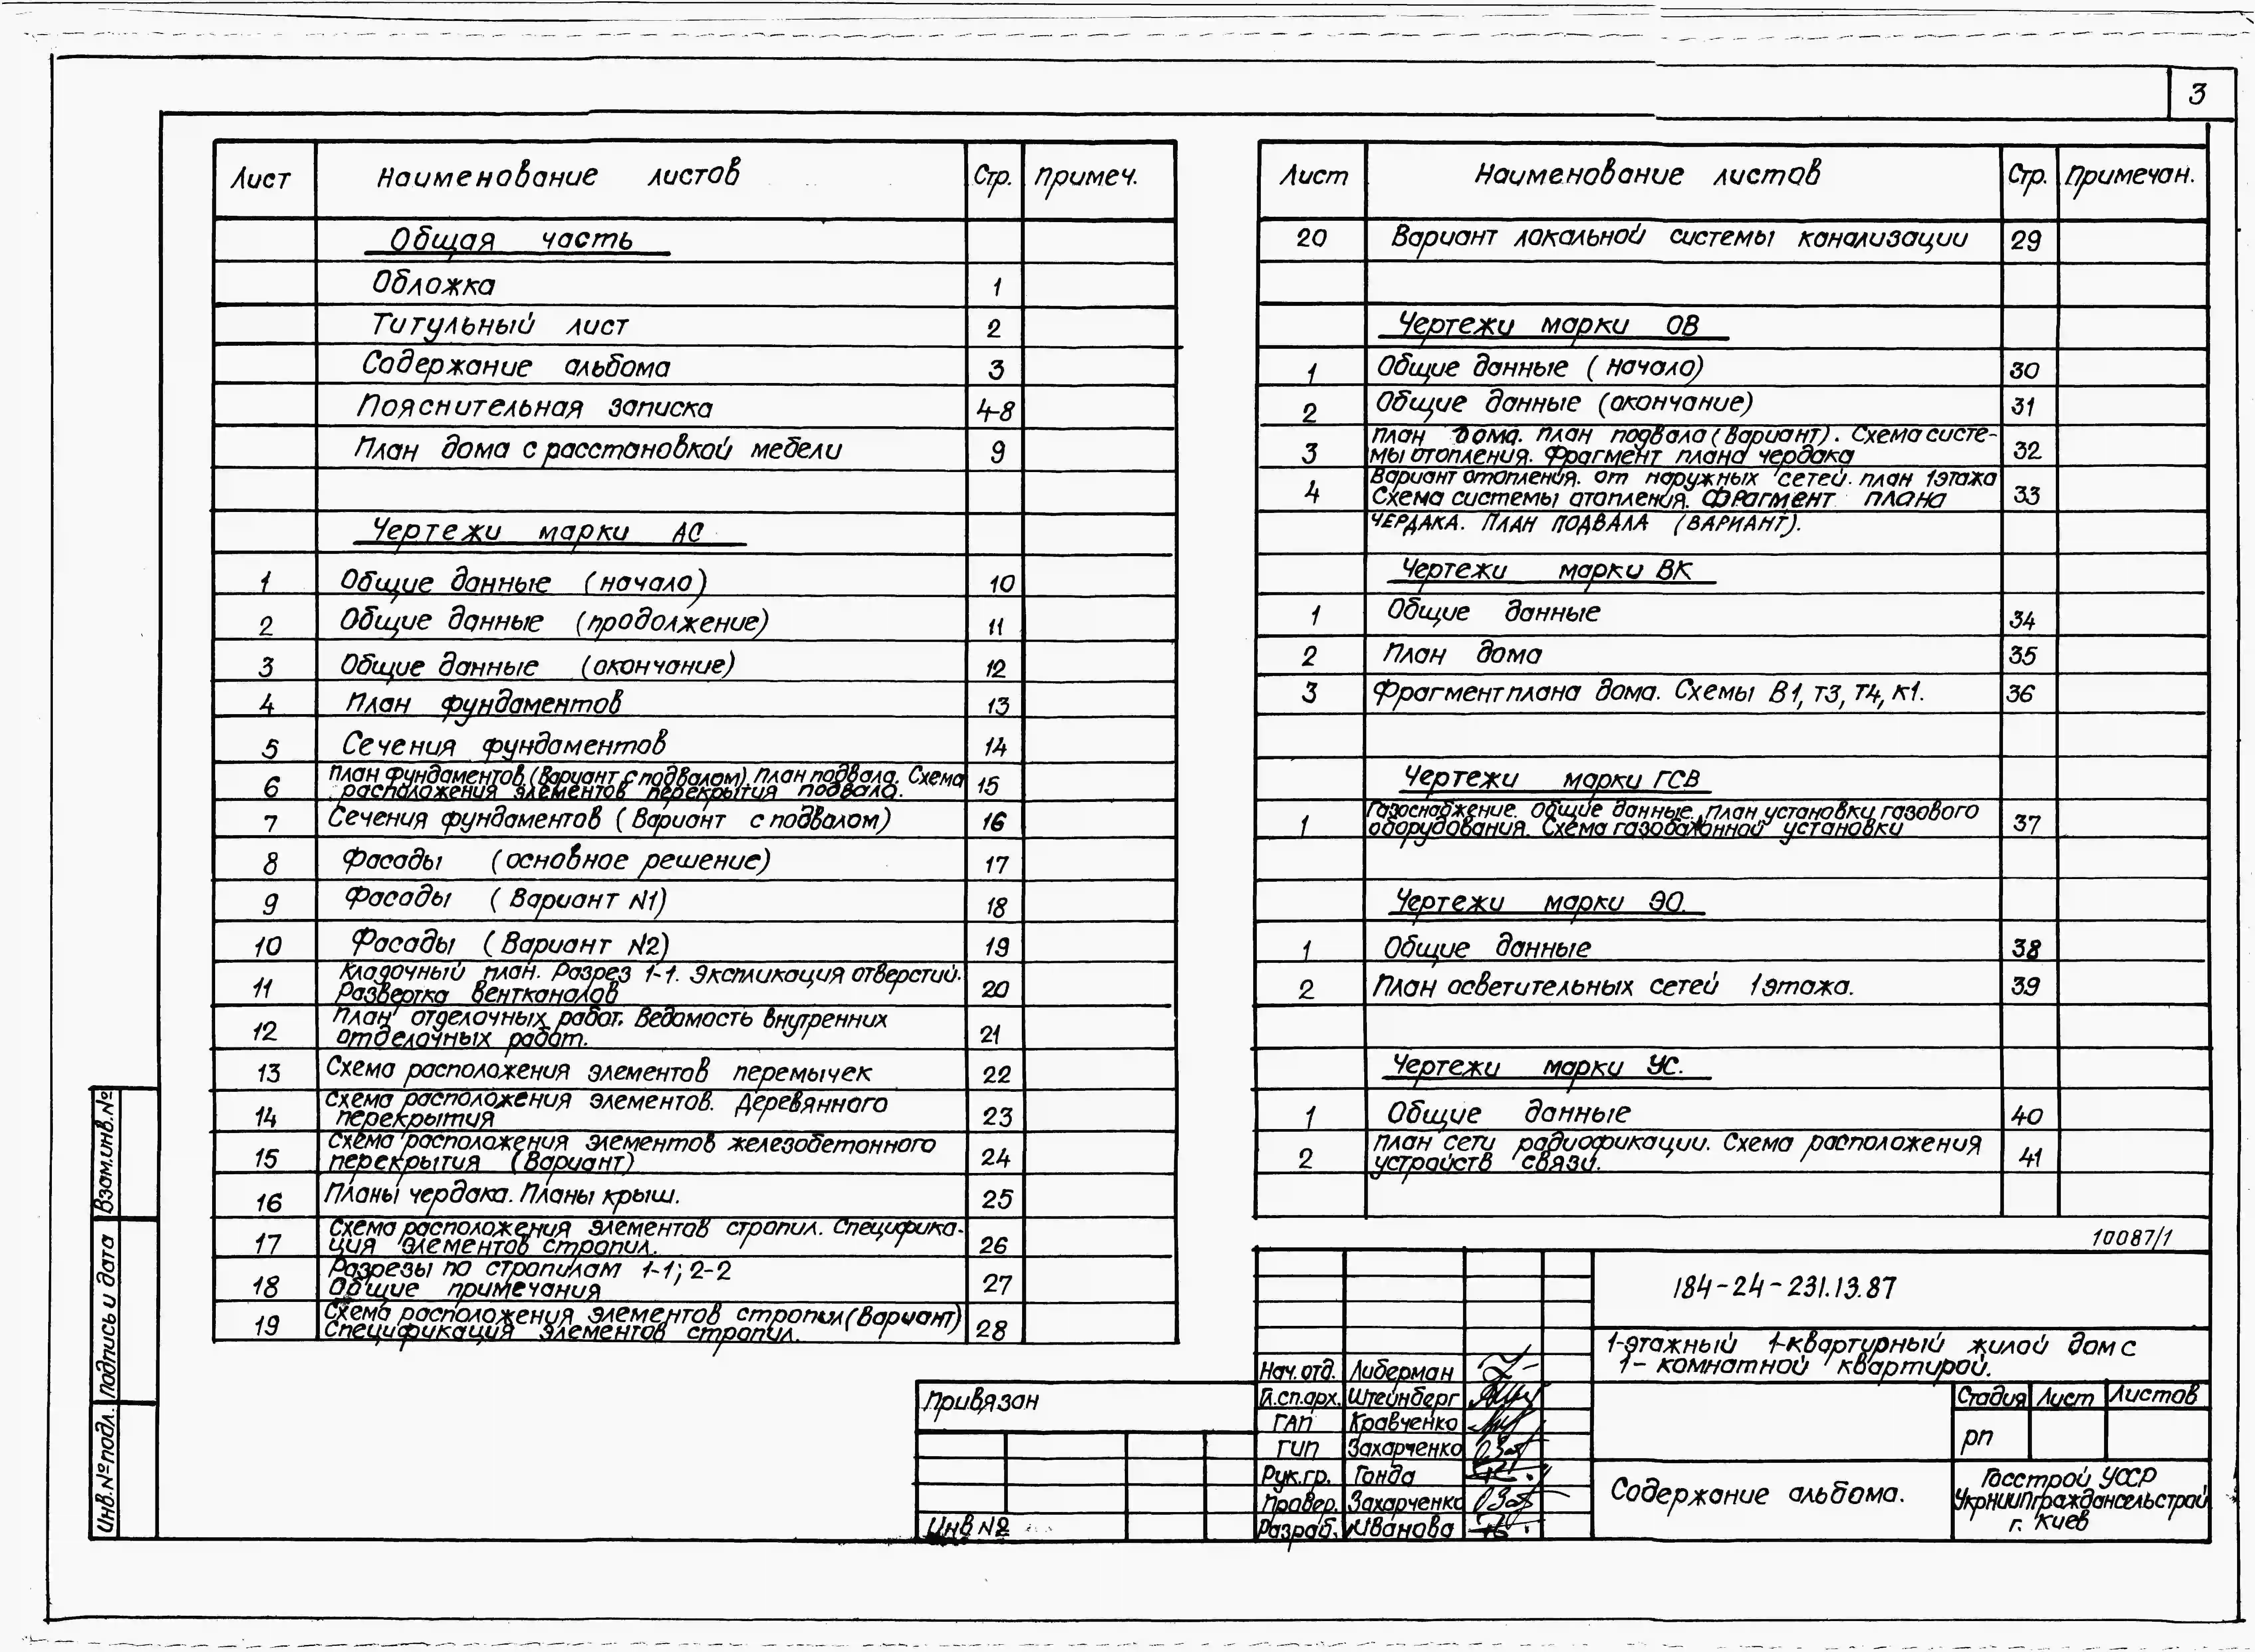 3
Лист Наименование листов Стр. Примеч.
Общая часть
Обложка 1
Титульный лист 2
Содержание альбома 3
Пояснительная записка 4-8
План дома с расстановкой мебели 9
Чертежи марки АС
1 Общие данные (начало) 10
2 Общие данные (продолжение) 11
3 Общие данные (окончание) 12
4 План фундаментов 13
5 Сечения фундаментов 14
6 План фундаментов (Вариант с подвалом). План подвала. Схема 15
расположения элементов перекрытия подвала.
7 Сечения фундаментов (Вариант с подвалом) 16
8 Фасады (основное решение) 17
9 Фасады (Вариант N1) 18
10 Фасады (Вариант N2) 19
11 Кладочный план. Разрез 1-1. Экспликация отверстий. 20
Развертка вентканалов
12 План отделочных работ. Ведомость внутренних 21
отделочных работ.
13 Схема расположения элементов перемычек 22
14 Схема расположения элементов. деревянного 23
перекрытия
15 Схема расположения элементов железобетонного 24
перекрытия (Вариант)
16 Планы чердака. Планы крыш. 25
17 Схема расположения элементов стропил. Специфика- 26
ция элементов стропил.
18 Разрезы по стропилам 1-1; 2-2 27
Общие примечания
19 Схема расположения элементов стропил (Вариант) 28
Спецификация элементов стропил.
Лист Наименование листов Стр. Примечан.
20 Вариант локальной системы канализации 29
Чертежи марки ОВ
1 Общие данные (начало) 30
2 Общие данные (окончание) 31
3 План дома. План подвала (Вариант). Схема систе- 32
мы отопления. Фрагмент плана чердака
4 Вариант отопления. от наружных сетей. план 1этажа 33
Схема системы отопления. Фрагмент плана
чердака. План подвала (вариант).
Чертежи марки ВК
1 Общие данные 34
2 План дома 35
3 Фрагмент плана дома. Схемы В1, Т3, Т4, К1. 36
Чертежи марки ГСВ
1 Газоснабжение. Общие данные. План установки газового 37
оборудования. Схема газобалонной установки
Чертежи марки ЭО.
1 Общие данные 38
2 План осветительных сетей 1этажа. 39
Чертежи марки УС.
1 Общие данные 40
2 План сети радиофикации. Схема расположения 41
устройств связи.
10087/1
184-24-231.13.87
1-этажный 1-квартирный жилой дом с
1-комнатной квартирой.
Нач.отд. Либерман
Гл.сп.арх. Штейнберг
ГАП Кравченко
ГИП Захарченко
Рук.гр. Ганда
Провер. Захарченко
Разраб. Иванова
Стадия Лист Листов
РП
Содержание альбома.
Госстрой УССР
УкрНИИПграждансельстрой
г. Киев
Привязан
Инв №
Взам.инв.№
Подпись и дата
Инв.№ подл.